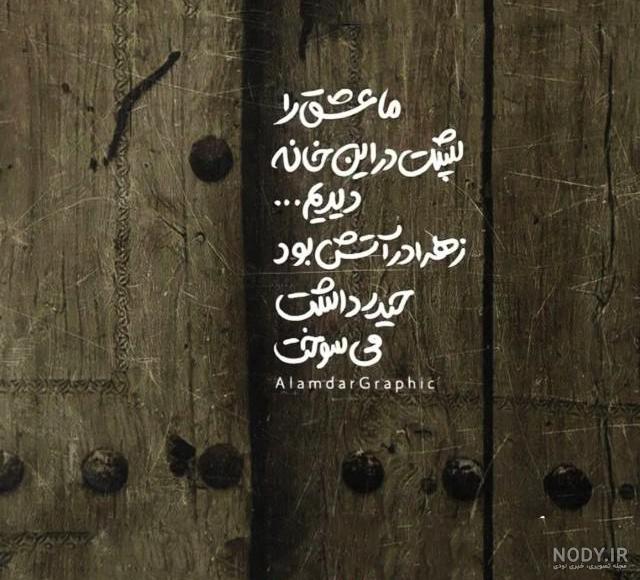 ما عشق را
پشت در این خانه
دیدیم...
زهرا در آتش بود
حیدر داشت
می سوخت
AlamdarGraphic
NODY.IR
مجله تصویری، خبری نودی